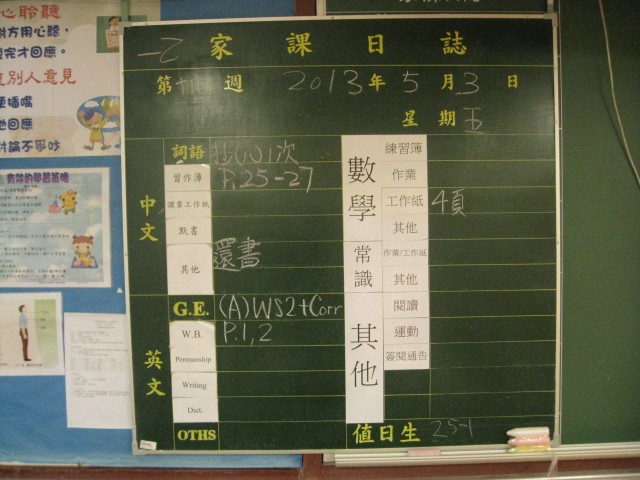 心聆聽
對方用心聽，
完才回應。
別人意見
插嘴
回應
討論不爭吵
一乙 家課日誌
第 週 2013年5月3日
星期五
中文
詞語 抄(八)1次
習作簿 P.25-27
課業工作紙
默書
其他 還書
英文
G.E. (A)WS2+Corr
W.B. P.1,2
Penmanship
Writing
Dict.
OTHS
數學
練習簿
作業
工作紙 4頁
其他
常識
作業/工作紙
其他
其他
閱讀
運動
簽閱通告
值日生 25-1